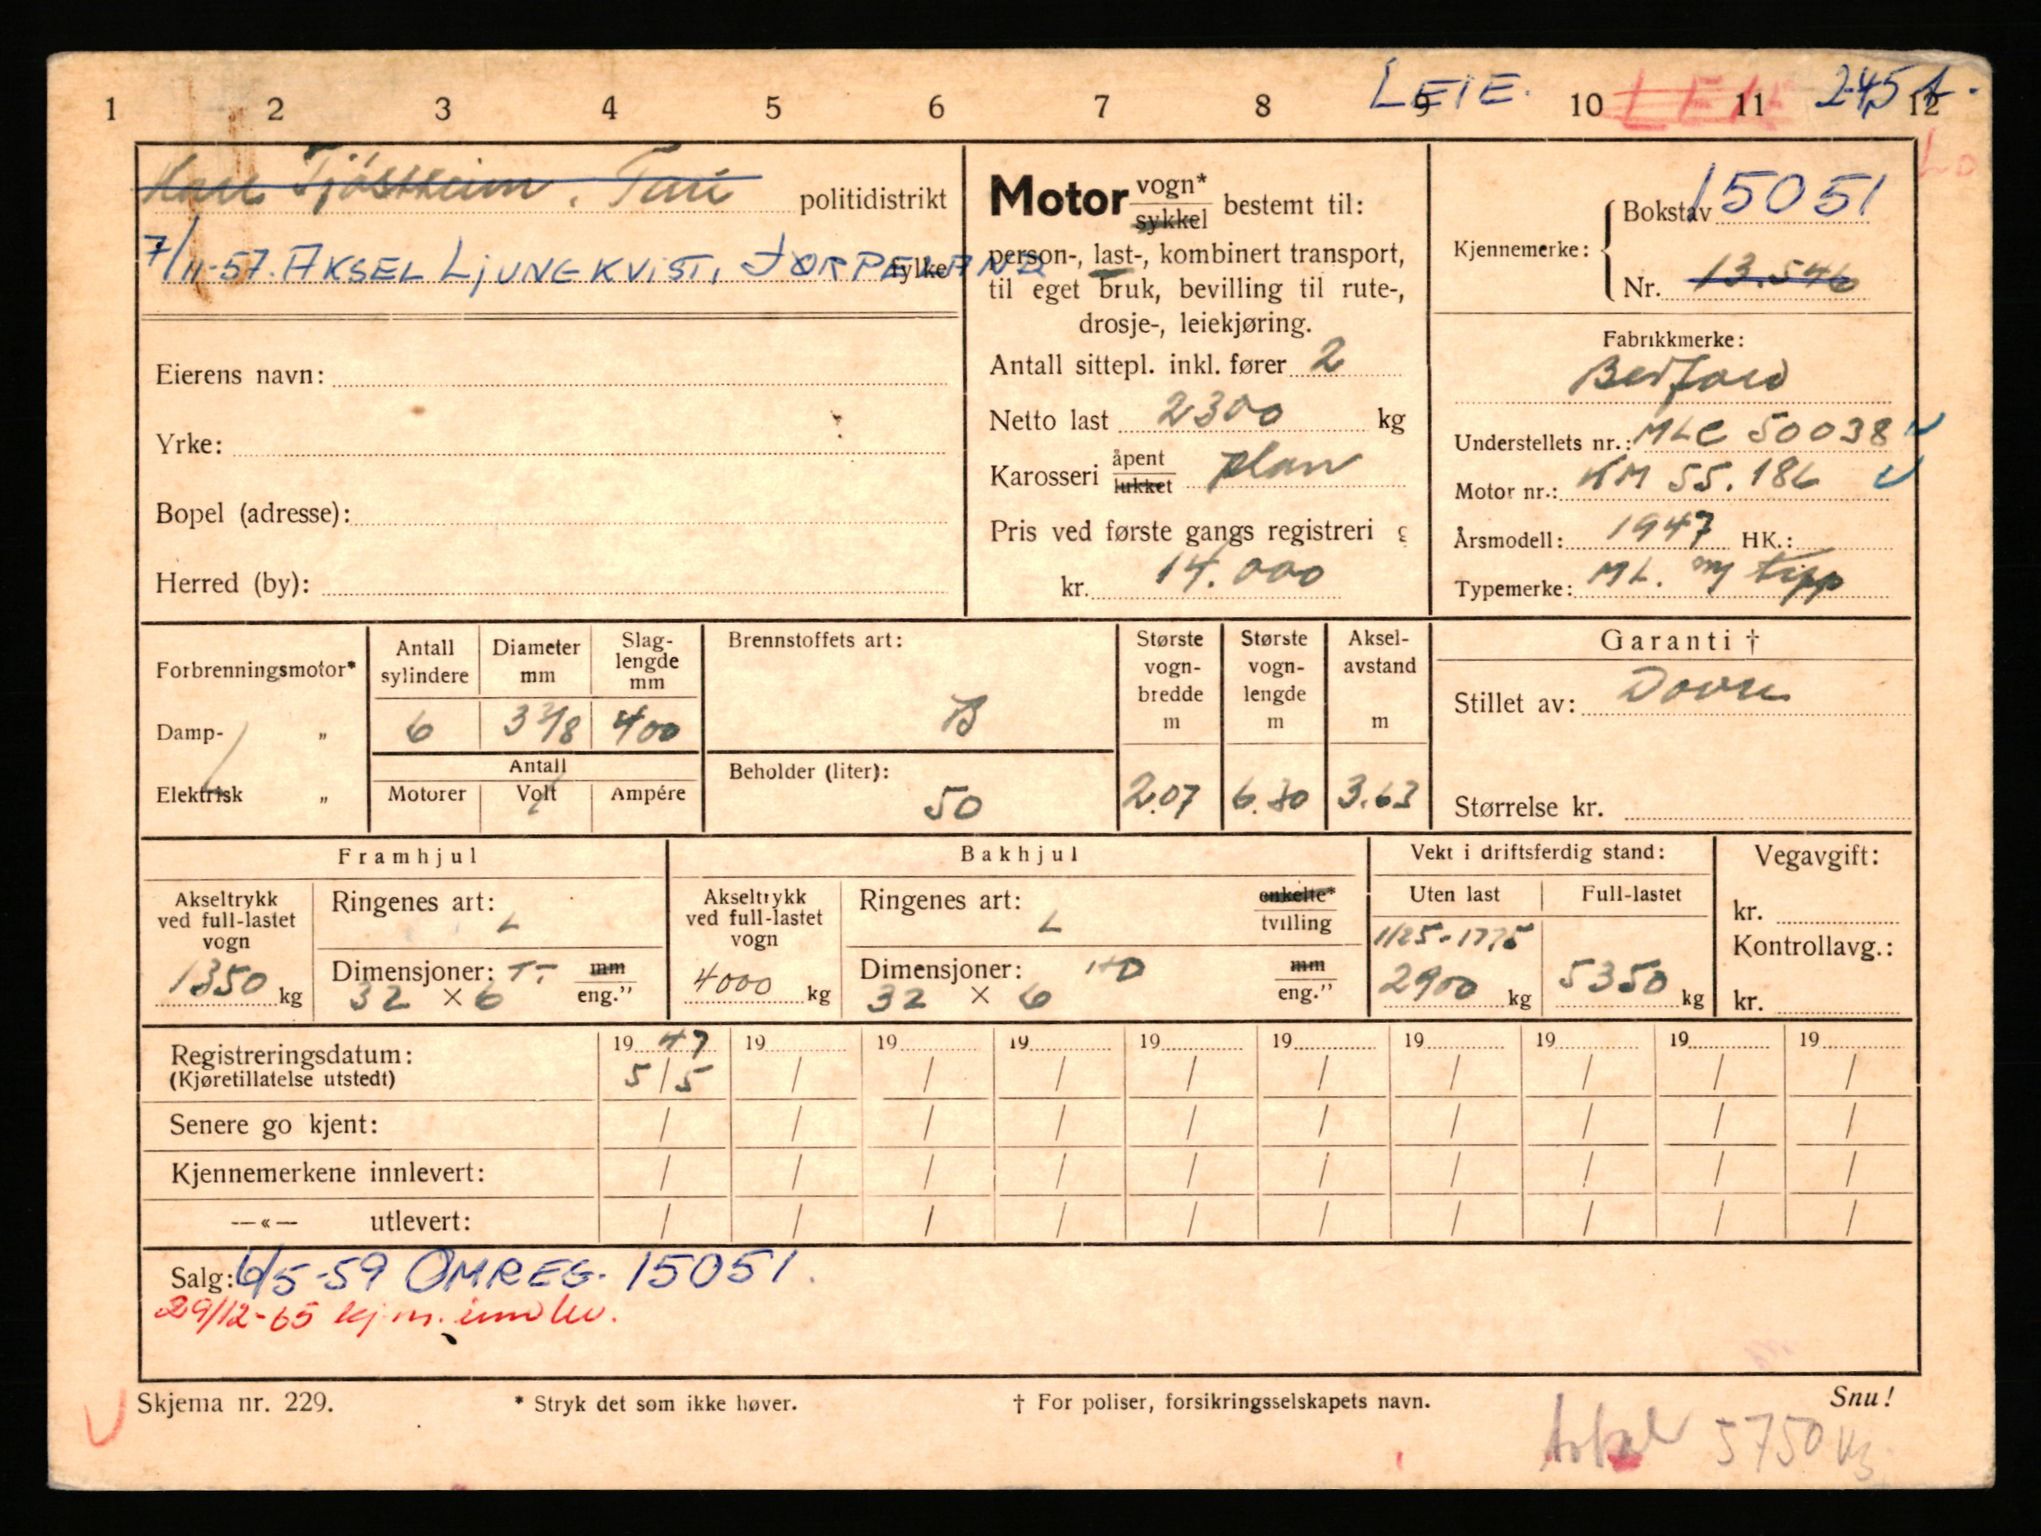 LEIE. LEIE 2.45 t.
1 2 3 4 5 6 7 8 9 10 11 12
Lo
Tjöstheim, Tau politidistrikt
7/11-57. AKSEL LJUNGKVIST, JØRPELAND fylke
Eierens navn:
Yrke:
Bopel (adresse):
Herred (by):
Motor vogn* sykkel bestemt til:
person-, last-, kombinert transport,
til eget bruk, bevilling til rute-,
drosje-, leiekjøring.
Antall sittepl. inkl. fører 2
Netto last 2300 kg
Karosseri åpent lukket plan
Pris ved første gangs registreri g
kr. 14.000
Kjennemerke: Bokstav 15051
Nr. 13.546
Fabrikkmerke:
Bedford
Understellets nr.: MLC 50038
Motor nr.: KM 55.186
Årsmodell: 1947 HK.:
Typemerke: ML. m/ tipp
Forbrenningsmotor*
Damp- „
Elektrisk „
Antall sylindere Diameter mm Slag-lengde mm
6 3 3/8 400
Antall
Motorer Volt Ampére
Brennstoffets art:
B
Beholder (liter):
50
Største vogn-bredde m Største vogn-lengde m Aksel-avstand m
2.07 6.30 3.63
Garanti †
Stillet av: Dovre
Størrelse kr.
Framhjul
Akseltrykk ved full-lastet vogn
1350 kg
Ringenes art: L
Dimensjoner: T- mm
32 × 6 eng.”
Bakhjul
Akseltrykk ved full-lastet vogn
4000 kg
Ringenes art: L enkelte* tvilling
Dimensjoner: HD mm
32 × 6 eng.”
Vekt i driftsferdig stand:
Uten last Full-lastet
1125-1775
2900 kg 5350 kg
Vegavgift:
kr.
Kontrollavg.:
kr.
Registreringsdatum: 19 47 19 19 19 19 19 19 19 19 19
(Kjøretillatelse utstedt) 5/5 / / / / / / / / /
Senere go kjent: / / / / / / / / / /
Kjennemerkene innlevert: / / / / / / / / / /
—«— utlevert: / / / / / / / / / /
Salg: 6/5-59 OMREG. 15051.
29/12-65 kj.m. innlev.
Skjema nr. 229. * Stryk det som ikke høver. † For poliser, forsikringsselskapets navn. Snu!
5750 kg